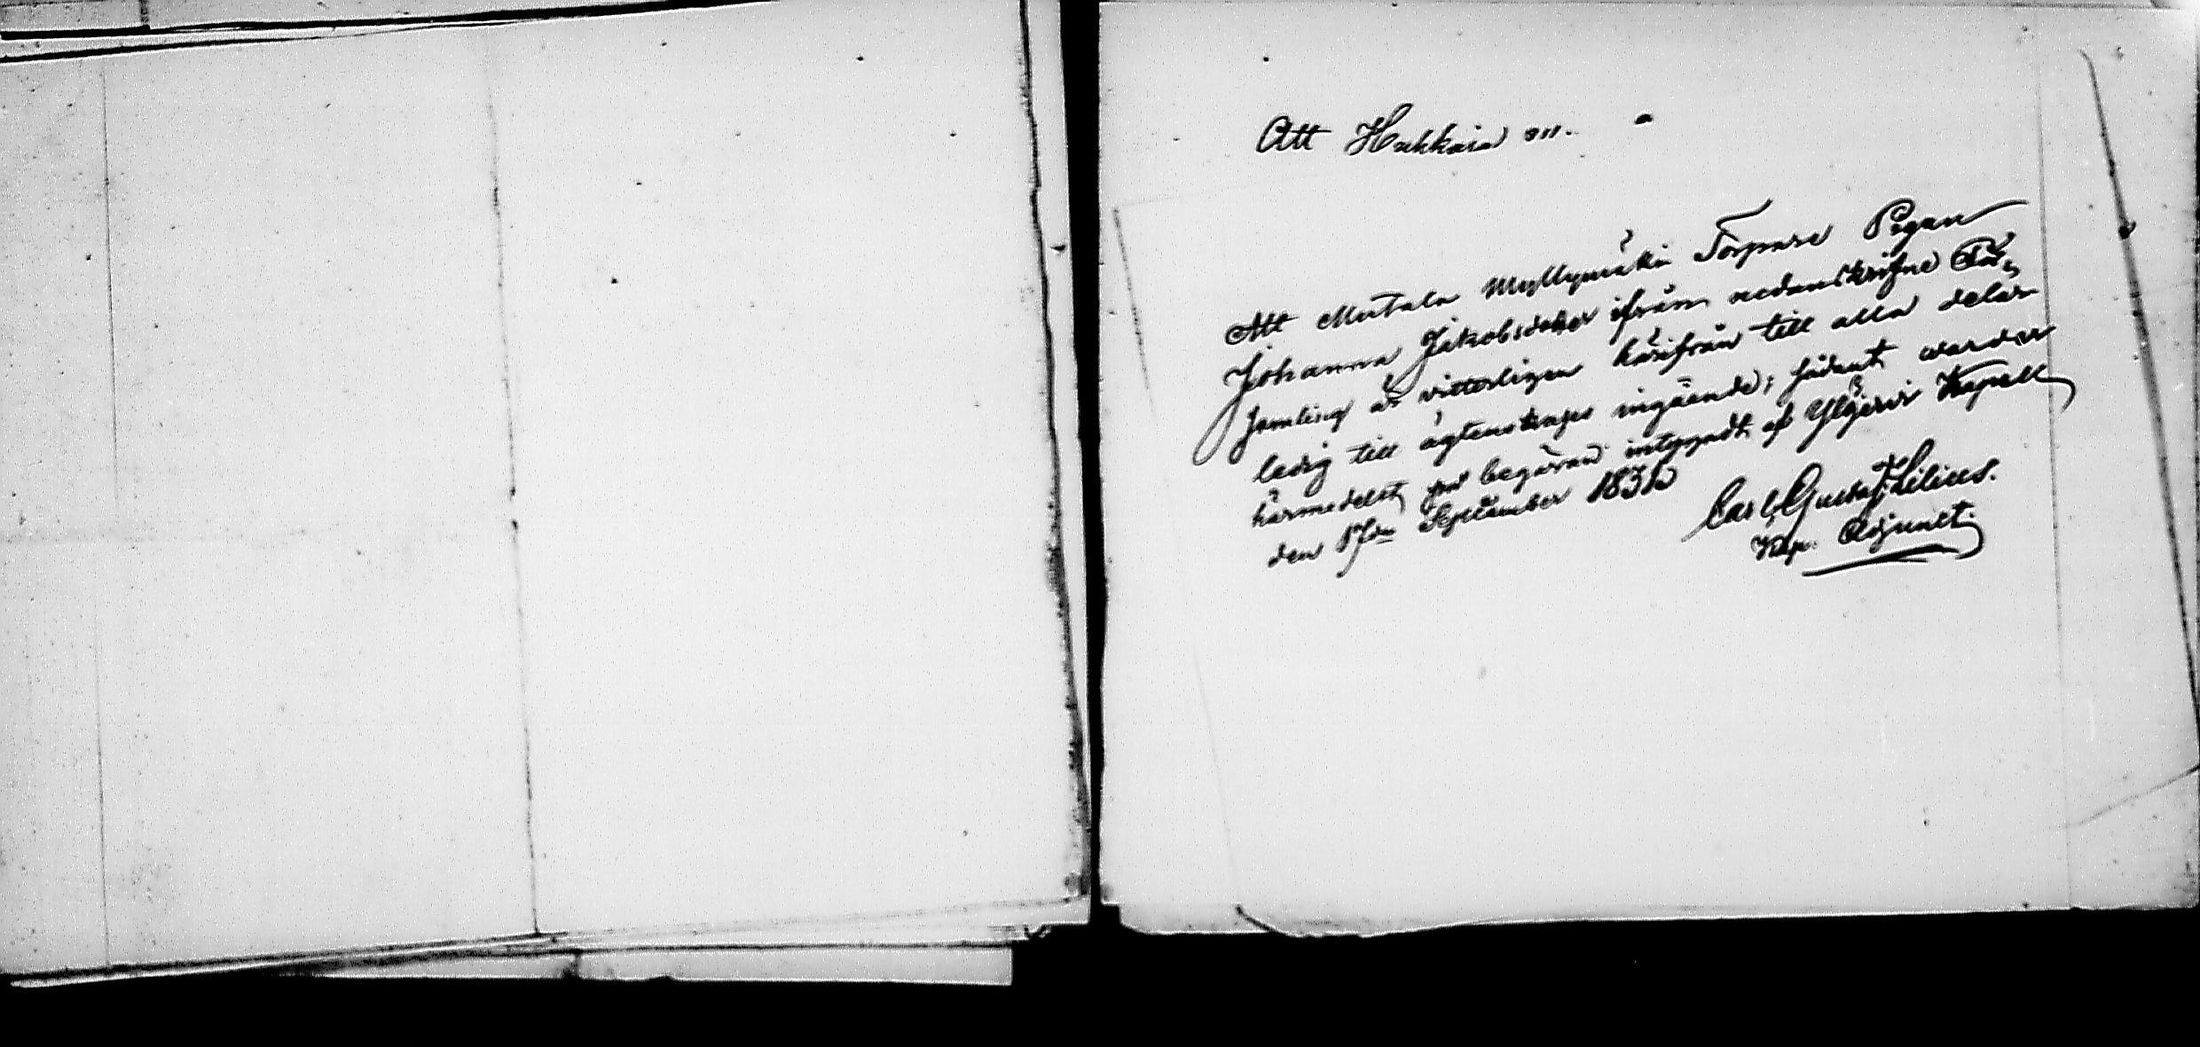 Att Hukkaia m.
Att Mutala Myllymäki Torpare Pigan
Johanna Jakobsdoter ifrån nedanskrifne För¬
samling är vitterligen härifrån till alla delar
ledig till ägtenskaps ingående; sådant warder
härmedelst på begäran intygadt af Ylöjervi Kapell
den 17de September 183
Carl Gustaf Lilius.
Kap. Adjunct.